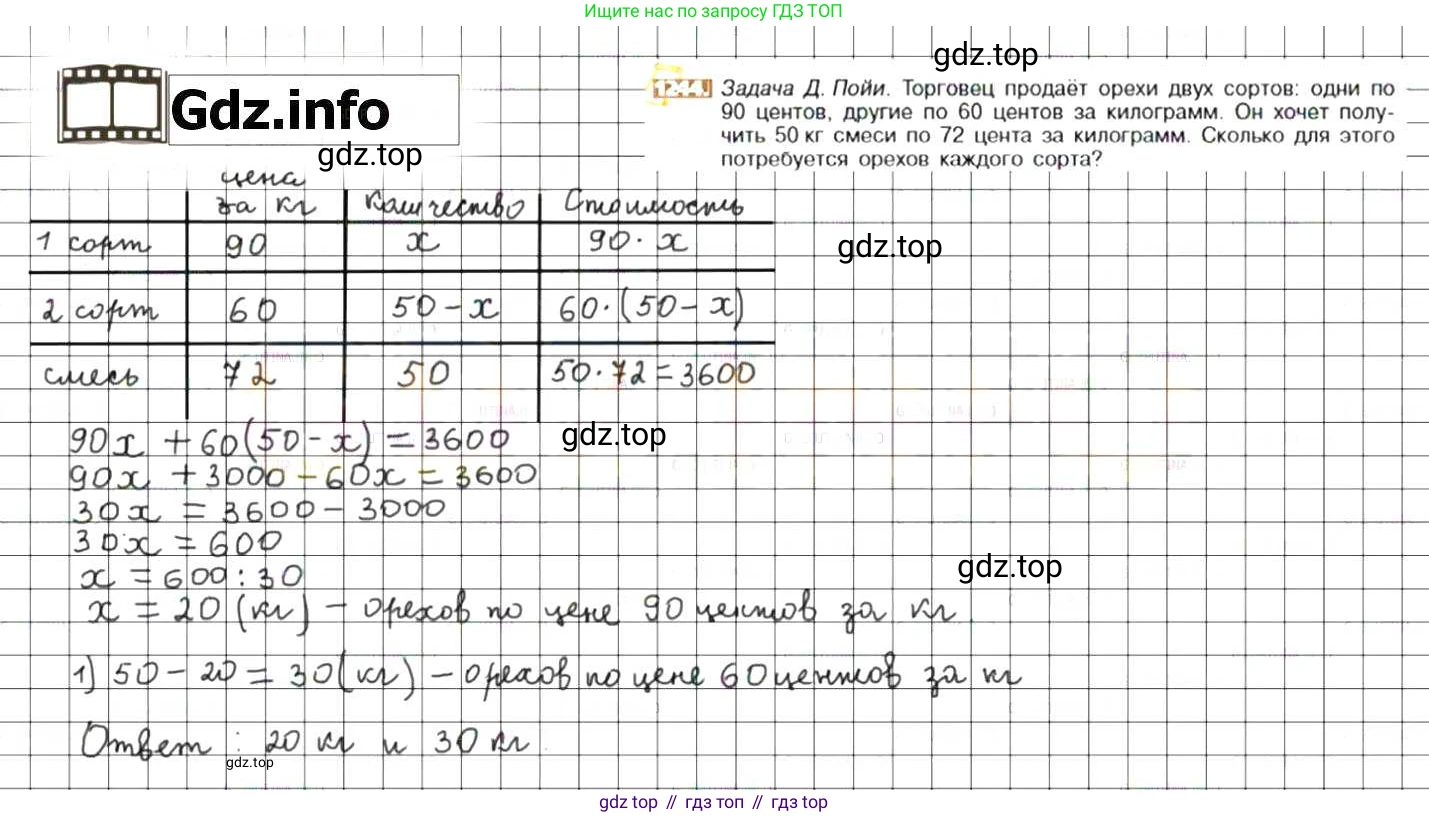 Ищите нас по запросу ГДЗ ТОП
gdz.top
Gdz.info
gdz.top
1244. Задача Д. Пойи. Торговец продаёт орехи двух сортов: одни по
90 центов, другие по 60 центов за килограмм. Он хочет полу-
чить 50 кг смеси по 72 цента за килограмм. Сколько для этого
потребуется орехов каждого сорта?
цена
за кг Количество Стоимость
1 сорт 90 x 90 · x
gdz.top
2 сорт 60 50 - x 60 · (50 - x)
смесь 72 50 50 · 72 = 3600
90x + 60(50 - x) = 3600
gdz.top
90x + 3000 - 60x = 3600
30x = 3600 - 3000
30x = 600
x = 600 : 30
gdz.top
x = 20 (кг) - орехов по цене 90 центов за кг
1) 50 - 20 = 30 (кг) - орехов по цене 60 центов за кг
Ответ : 20 кг и 30 кг
gdz.top
gdz top // гдз топ // gdz top